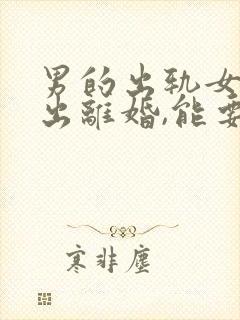 男的出轨女
出離婚,能要
寒非塵